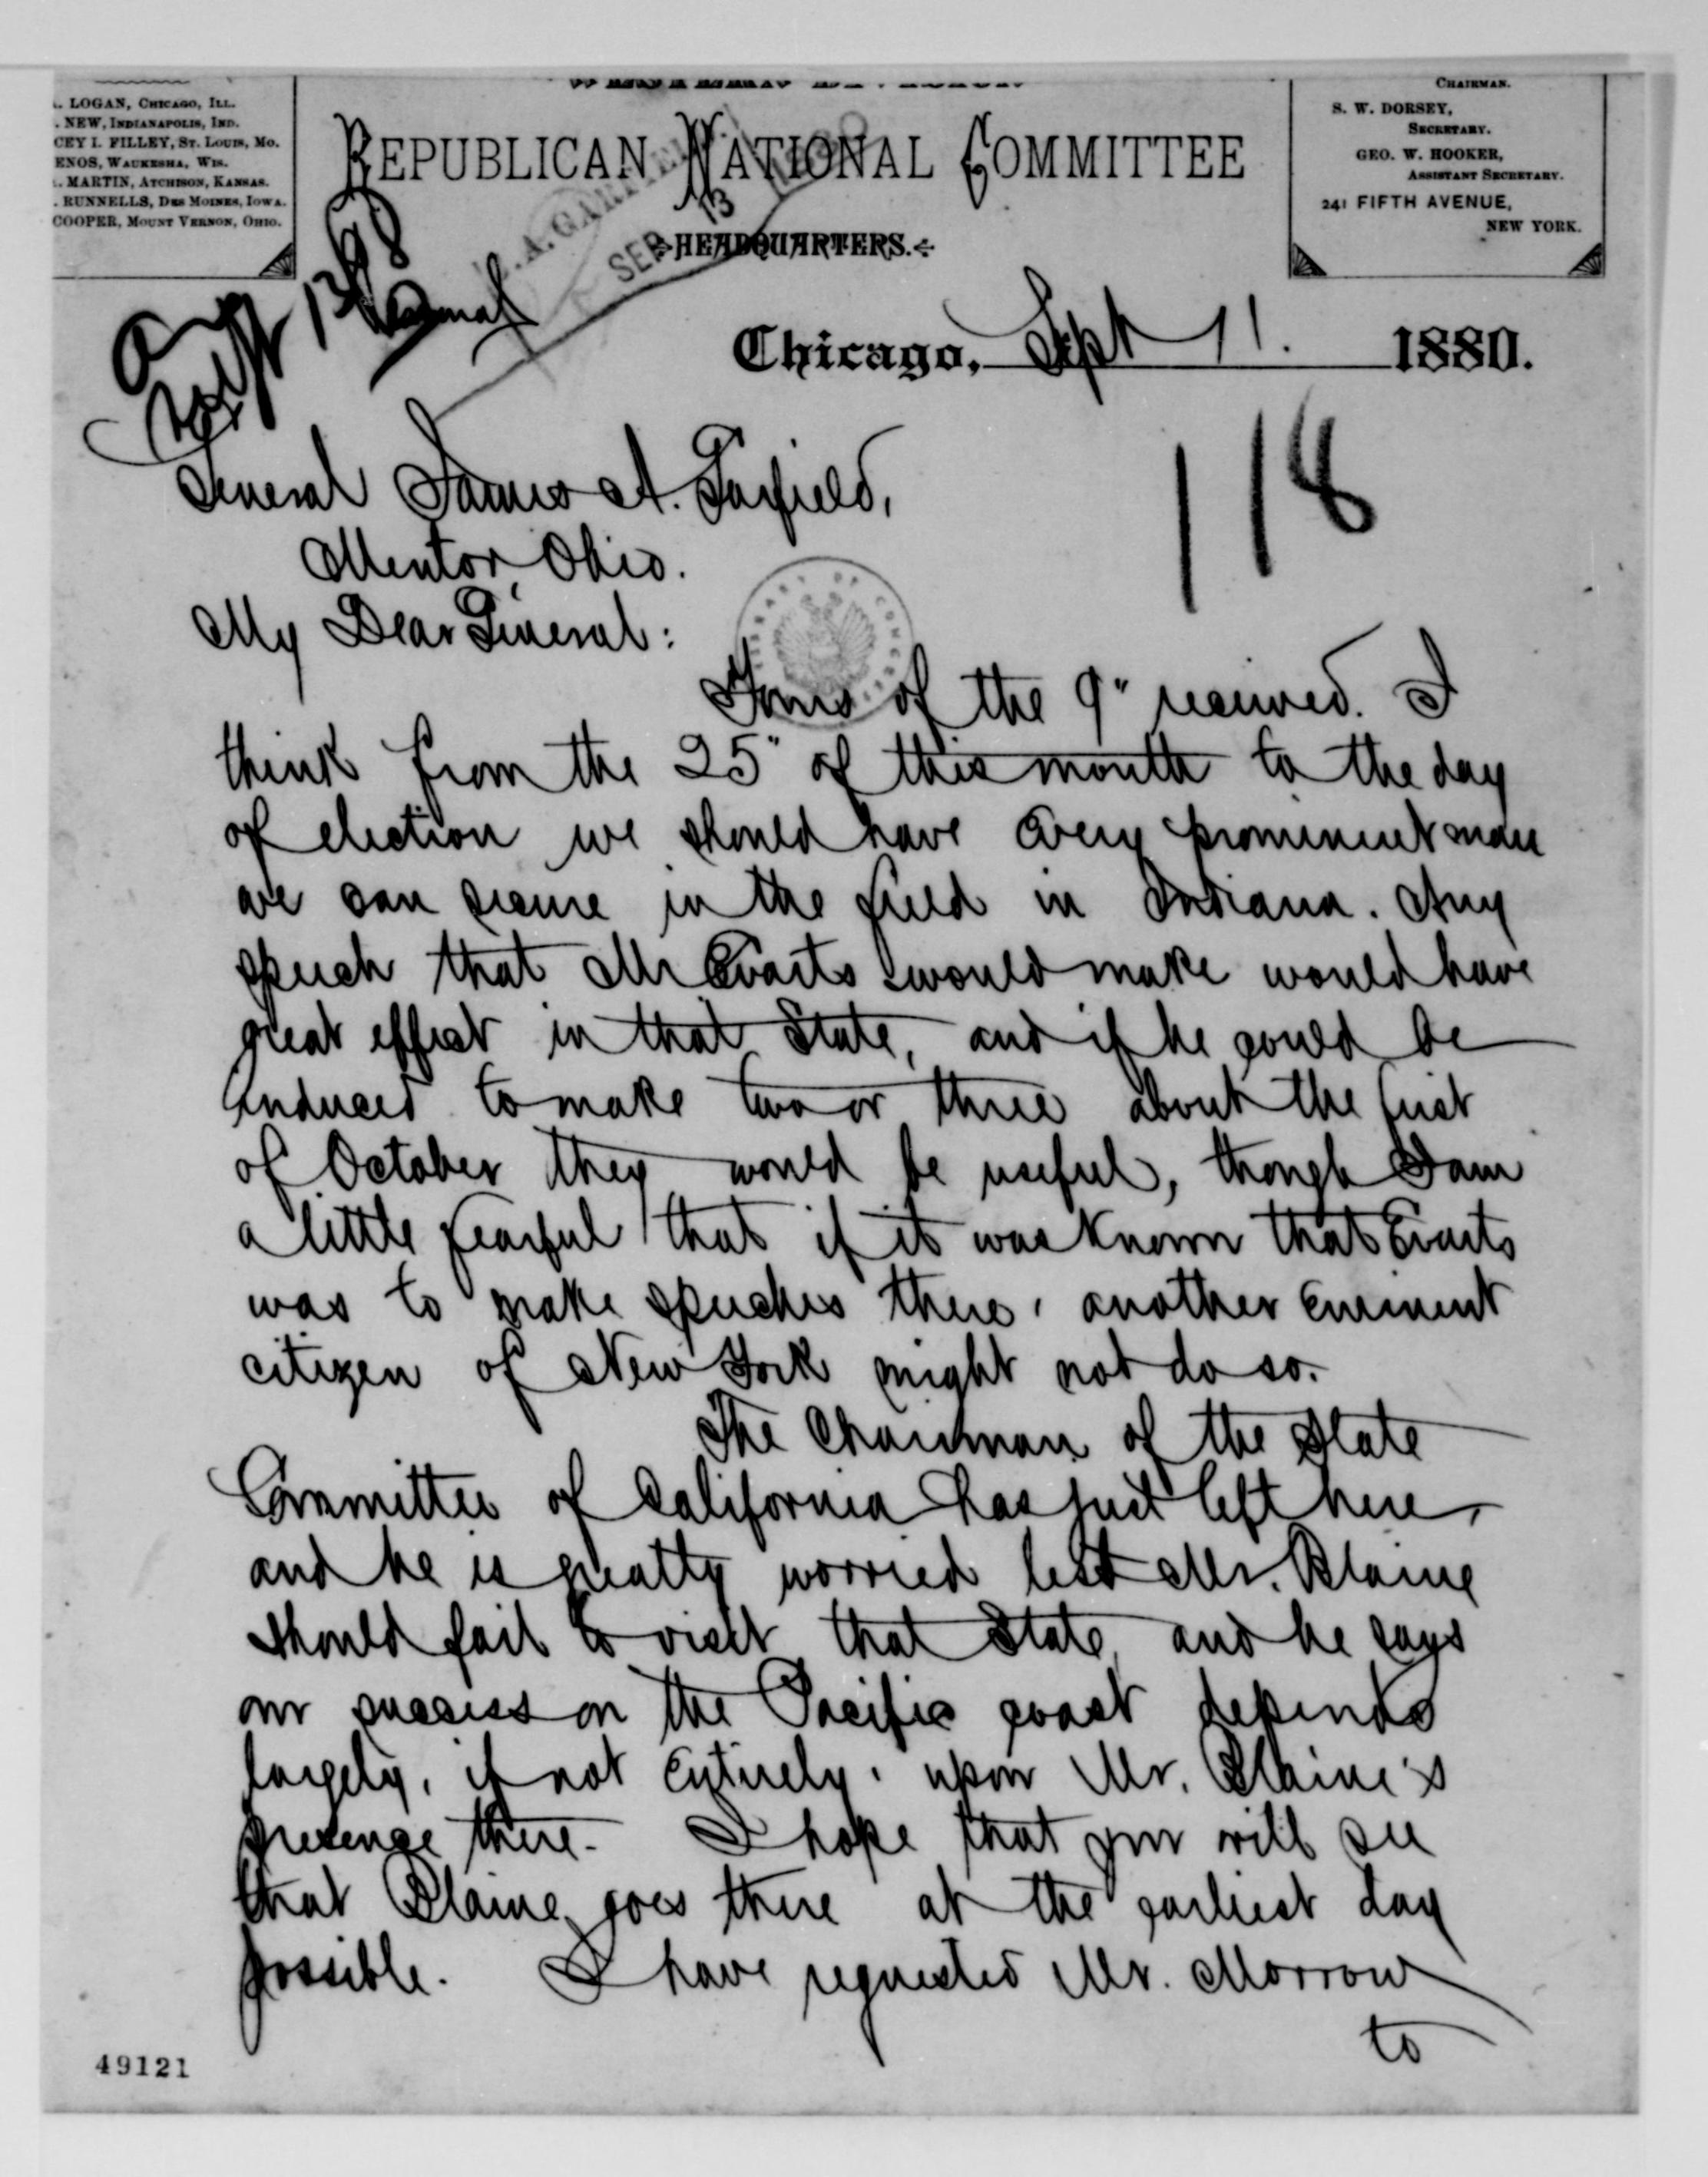 . LOGAN, CHICAGO, ILL.
. NEW, INDIANAPOLIS, IND.
CEY I. FILLEY, ST. LOUIS, MO.
ENOS, WAUKESHA, WIS.
. MARTIN, ATCHISON, KANSAS.
. RUNNELLS, DES MOINES, IOWA.
COOPER, MOUNT VERNON, OHIO.
REPUBLICAN NATIONAL COMMITTEE
HEADQUARTERS.
CHAIRMAN.
S. W. DORSEY,
SECRETARY.
GEO. W. HOOKER,
ASSISTANT SECRETARY.
241 FIFTH AVENUE,
NEW YORK.
J. A. GARFIELD
SEP 13 1880
Ansd
Sept 13/80
Chicago, Sept 11. 1880.
118
General James A. Garfield,
Mentor, Ohio.
My Dear General:
LIBRARY OF CONGRESS
Yours of the 9" received. I
think from the 25" of this month to the day
of election we should have every prominent man
we can secure in the field in Indiana. Any
speech that Mr Evarts would make would have
great effect in that State, and if he could be
induced to make two or three about the first
of October they would be useful, though I am
a little fearful that if it was known that Evarts
was to make speeches there, another eminent
citizen of New York might not do so.
The Chairman of the State
Committee of California has just left here,
and he is greatly worried lest Mr. Blaine
should fail to visit that State, and he says
our success on the Pacific coast depends
largely, if not entirely, upon Mr. Blaine's
presence there. I hope that you will see
that Blaine goes there at the earliest day
possible. I have requested Mr. Morrow
to
49121